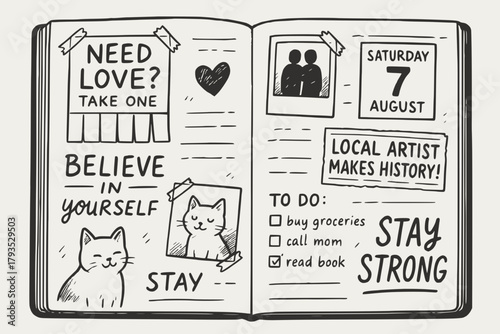 NEED
LOVE?
TAKE ONE
BELIEVE
IN
YOURSELF
STAY
SATURDAY
7
AUGUST
LOCAL ARTIST
MAKES HISTORY!
TO DO:
buy groceries
call mom
read book
STAY
STRONG
1793529503